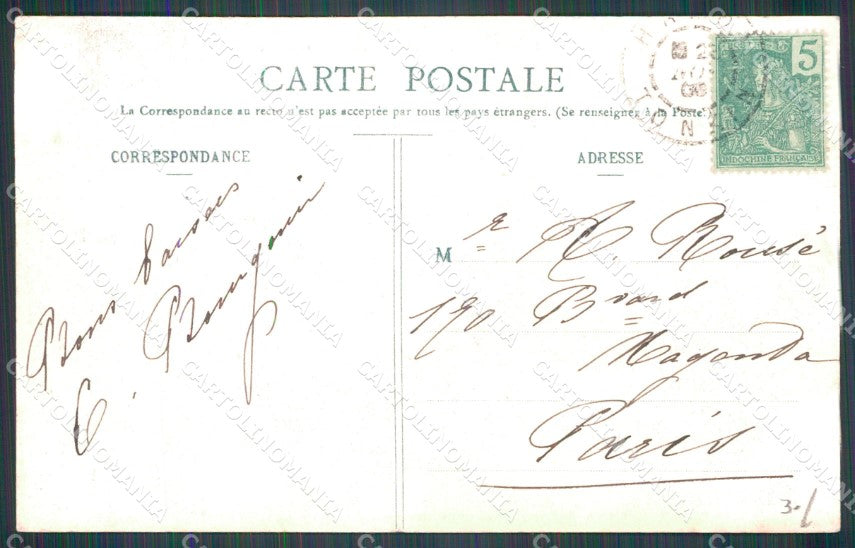 CARTE POSTALE
La Correspondance au recto n'est pas acceptée par tous les pays étrangers. (Se renseignez à la Poste)
CORRESPONDANCE
ADRESSE
5
INDOCHINE FRANÇAISE
Bons baisers
E. Bourgouin
Mr A. Rousé
190 Bvard
Magenta
Paris
3./
CARTOLINOMANIA